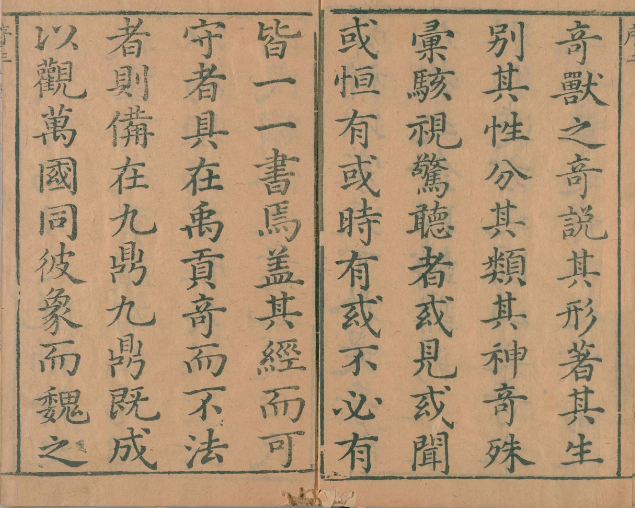 奇獸之奇說其形著其生
別其性分其類其神奇殊
彙駭視驚聽者或見或聞
或恒有或時有或不必有
皆一一書焉盖其經而可
守者具在禹貢奇而不法
者則備在九鼎九鼎既成
以觀萬國同彼象而魏之